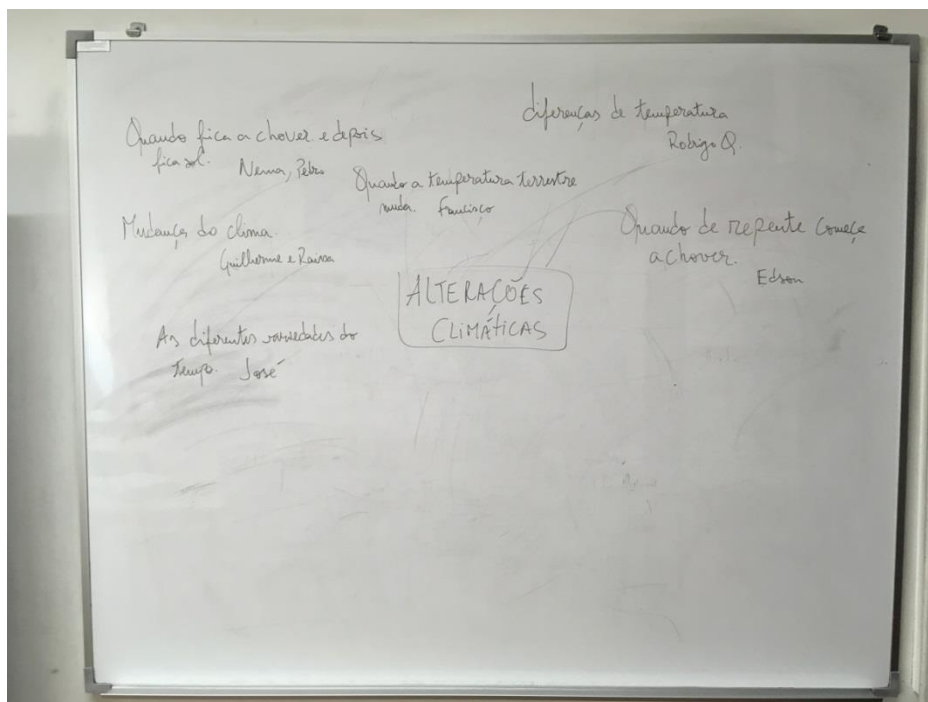 Quando fica a chover e depois
fica sol.
Nema, Pedro
diferenças de temperatura
Rodrigo Q.
Quando a temperatura terrestre
muda. Francisco
Mudança do clima.
Guilherme e Raissa
Quando de repente começa
a chover.
Edson
ALTERAÇÕES
CLIMÁTICAS
As diferentes variedades do
tempo. José